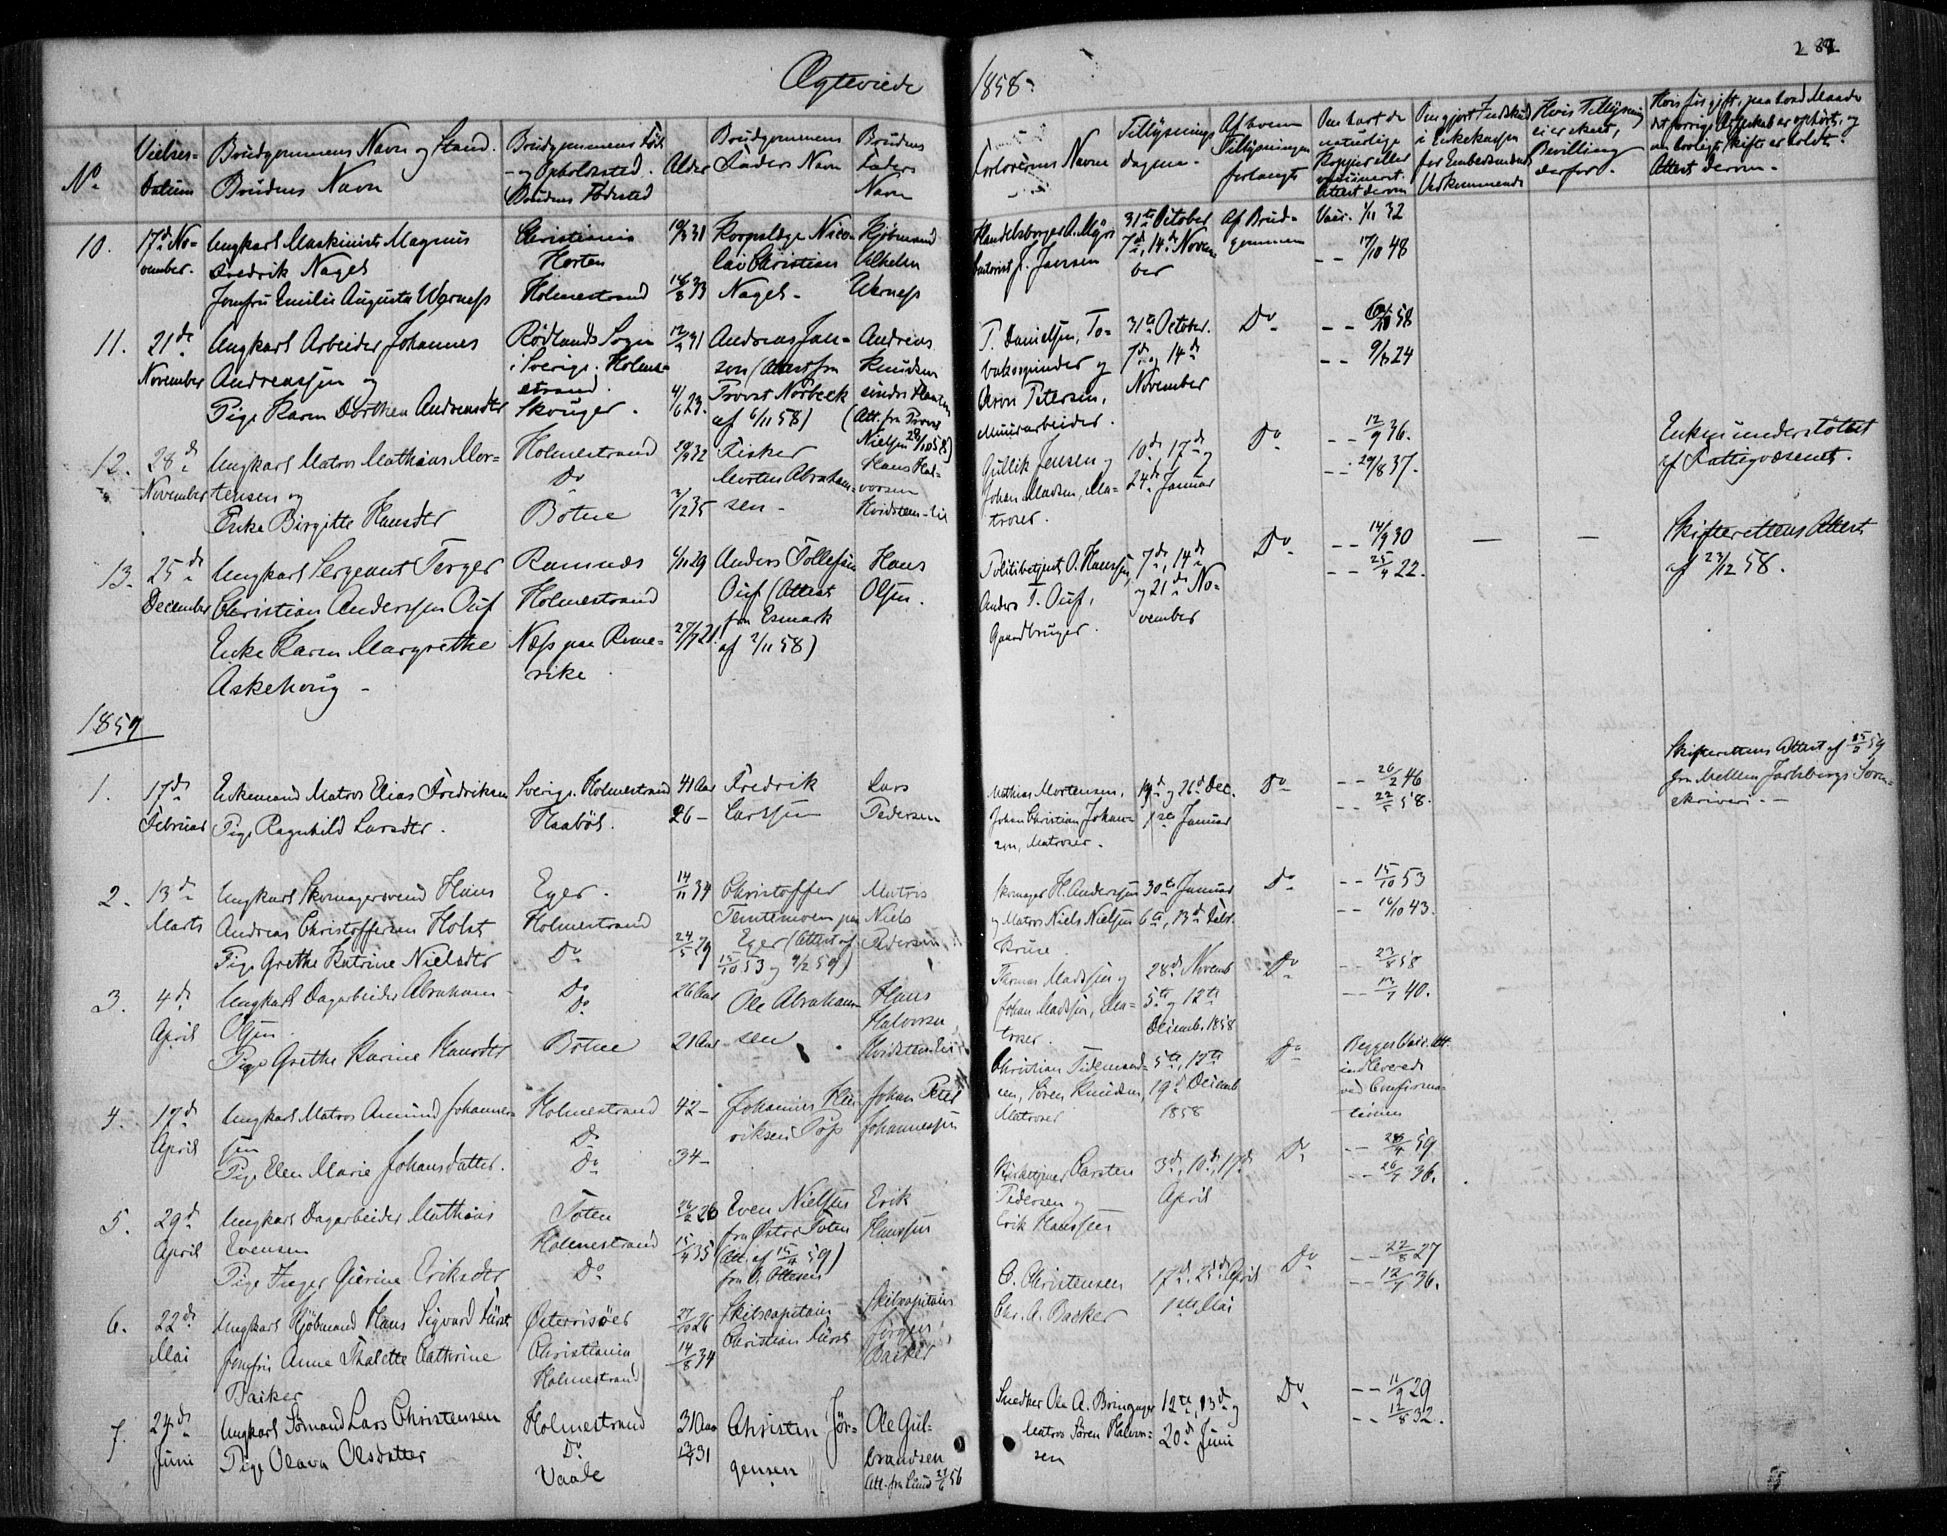 Ægteviede
1858.
No
Vielses-
Datum
Brudgommens Navn og Stand.
Brudens Navn
Brudgommens Føde
- og Opholdssted.
Brudens Fødested
Alder
Brudgommens
Faders Navn
Brudens
Faders
Navn
Forloverens Navne
Tillysnings
dagene.
Af hvem
Tillysningen
forlangt
Om havt de
naturlige
Kopper eller
vaccineret.
Attest derom
Om gjort Indskud
i Enkekassen
for Embedsmænds
Vedkommende
Hvis Tillysning
ei er skeet,
Bevilling
derfor.
Hvis før gift, paa hvad Maade
det forrige Ægteskab er ophørt, og
om lovligt Skifte er holdt.
Attest derom.
10.
17de No-
vember.
Ungkarl Maskinist Magnus
Fredrik Nagel
Jomfru Emilie Augusta Werness
Christiania
Horten
Holmestrand
Korpslæge Nico-
lai Christian
Nagel
Kjøbmand
Vilhelm
Werness
J. Jansen
31te October
7de, 14de Novem
ber
Af Brud-
gommen
Vacc. 1/11 32
- - 17/10 48
11.
21de
November
Ungkarl Arbeider Johannes
Andreassen og
Pige Karen Dorthea Andreasdtr
Rødlands Sogn
i Sverige. Holme-
strand.
Skouger.
4/6 23.
Andreas Jan-
son (Attest fra
Provst Norbeck
af 6/11 58)
Andreas
Knudsen
T. Danielsen, To-
baksspinder og
Aron Petersen,
Muurarbeider.
31te October.
7de og 14de
November
Do
- - 9/8 24
12.
28de
November
Ungkarl Matros Mathias Mor-
tensen og
Enke Birgitte Hansdtr
Holmestrand
Do
Botne
Fisker
Morten Abraham-
sen
Hans Hal-
vorsen
Gullik Jensen og
Johan Madsen, Ma-
troser.
10de, 17de og
24de Januar
Do
- - 12/9 36.
- - 29/8 37.
Enken understøttet
af Fattigvæsenet.
13.
25de
December
Ungkarl Sergeant Torger
Christian Anderssen Ouf
Enke Karen Margrethe
Askehoug
Ramnæs
Holmestrand
Næs paa Rome-
rike
6/11 29
27/7 21.
Anders Tollefsen
Ouf (Attest
fra Esmark
af 2/11 58)
Hans
Olsen.
Politibetjent O. Hanssen,
Anders T. Ouf,
Gaardbruger.
7de, 14de
og 21de No-
vember
Do
- - 14/9 30
- - 25/4 22.
Skifterettens Attest
af 23/12 58.
1859
1.
17de
Februar
Enkemand Matros Elias Fredriksen
Pige Ragnhild Larsdtr.
Sverige. Holmestrand
Haabøl.
41 Aar
26 -
Fredrik
Carlsen
Lars
Pedersen
Mathias Mortensen,
Johan Christian Johan-
sen, Matroser.
19de og 26de Dec.
1ste Januar
Do
- - 26/2 46
- - 22/5 58.
Skifterettens Attest af 59
fra Mellem Jarlsbergs Soren-
skriveri.
2.
13de
Marts
Ungkarl Skomagersvend Hans
Andreas Christoffersen Holst
Pige Grethe Katrine Nielsdtr
Eger.
Holmestrand
Do
14/11 34
24/5 29
Christoffer
Temtemoen paa
Eger (Attest af
15/10 53 og 9/2 59)
Matros
Niels
Pedersen
Skomager H. Anderssen
og Matros Niels Nielsen
Kruse
30te Januar
6te, 13de Febr.
Do
- - 15/10 53
- - 16/10 43.
3.
4de
April
Ungkarl Dagarbeider Abraham
Olsen
Pige Grethe Karine Hansdtr
Do
Do
Botne
26 Aar
21 Aar
Ole Abraham-
sen
Hans
Halvorsen
Thomas Madssen og
Johan Madssen, Ma-
troser.
28de Novemb
5te og 12te
Decemb. 1858
Do
- - 23/8 58
- - 13/7 40.
4.
17de
April
Ungkarl Matros Amund Johannes-
sen
Pige Elen Marie Johansdatter.
Holmestrand
Do
Do
42 -
34 -
Johannes Hen-
riksen
Johan Peter
Johannessen
Christian Tidemand-
sen, Søren Knudsen,
Matroser
5te, 12te
19de Decemb
1858
Do
Begges Vacc. Att.
indleverede
ved Confirma-
tionen
5.
29de
April
Ungkarl Dagarbeider Mathias
Evensen
Pige Inger Gurine Eriksdtr
Toten
Holmestrand
Do
15/4 35
Even Nielsen
fra Østre Toten
(Att. af 15/4 59)
fra O. Ottesen
Erik
Hanssen
Carsten
Pedersen og
Erik Hanssen
3de, 10de, 17de
April
Do
- - 59.
- - 26/7 36.
6.
22de
Mai
Ungkarl Kjøbmand Hans Sigvard Fürst
Jomfru Anne Thalette Cathrine
Backer
Østerrisøer
Christiania
Holmestrand
14/8 34
Skibscapitain
Christian Fürst
Skibscapitain
Jørgen
Backer
C. Christensen
Chr. A. Backer
17de, 25de April
1ste Mai
Do
- - 22/8 27
- - 12/7 36.
7.
24de
Juni
Ungkarl Sømand Lars Christensen
Pige Olava Olsdatter
Holmestrand
Do
Vaale
31 Aar
Christen Jør-
gensen
Ole Gul-
brandsen
Snedker Ole A. Bringager
Matros Søren Halvor-
sen
12te, 13de og
20de Juni
Do
- - 11/9 29
- - 12/8 32.